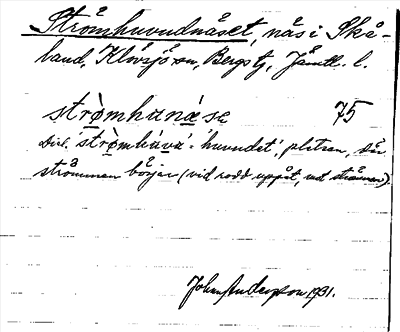 Strömhuvudnäset, näs i Skå-
land, Klövsjö sn, Bergs tg, Jämtl. l.
strò̱mhʉnǽse 75
Dial. 'strò̱mhʉ́vʉ' = 'huvudet', platsen, där
strömmen börjar (vid rodd uppåt, mot strömmen).
John Anderson 1931.